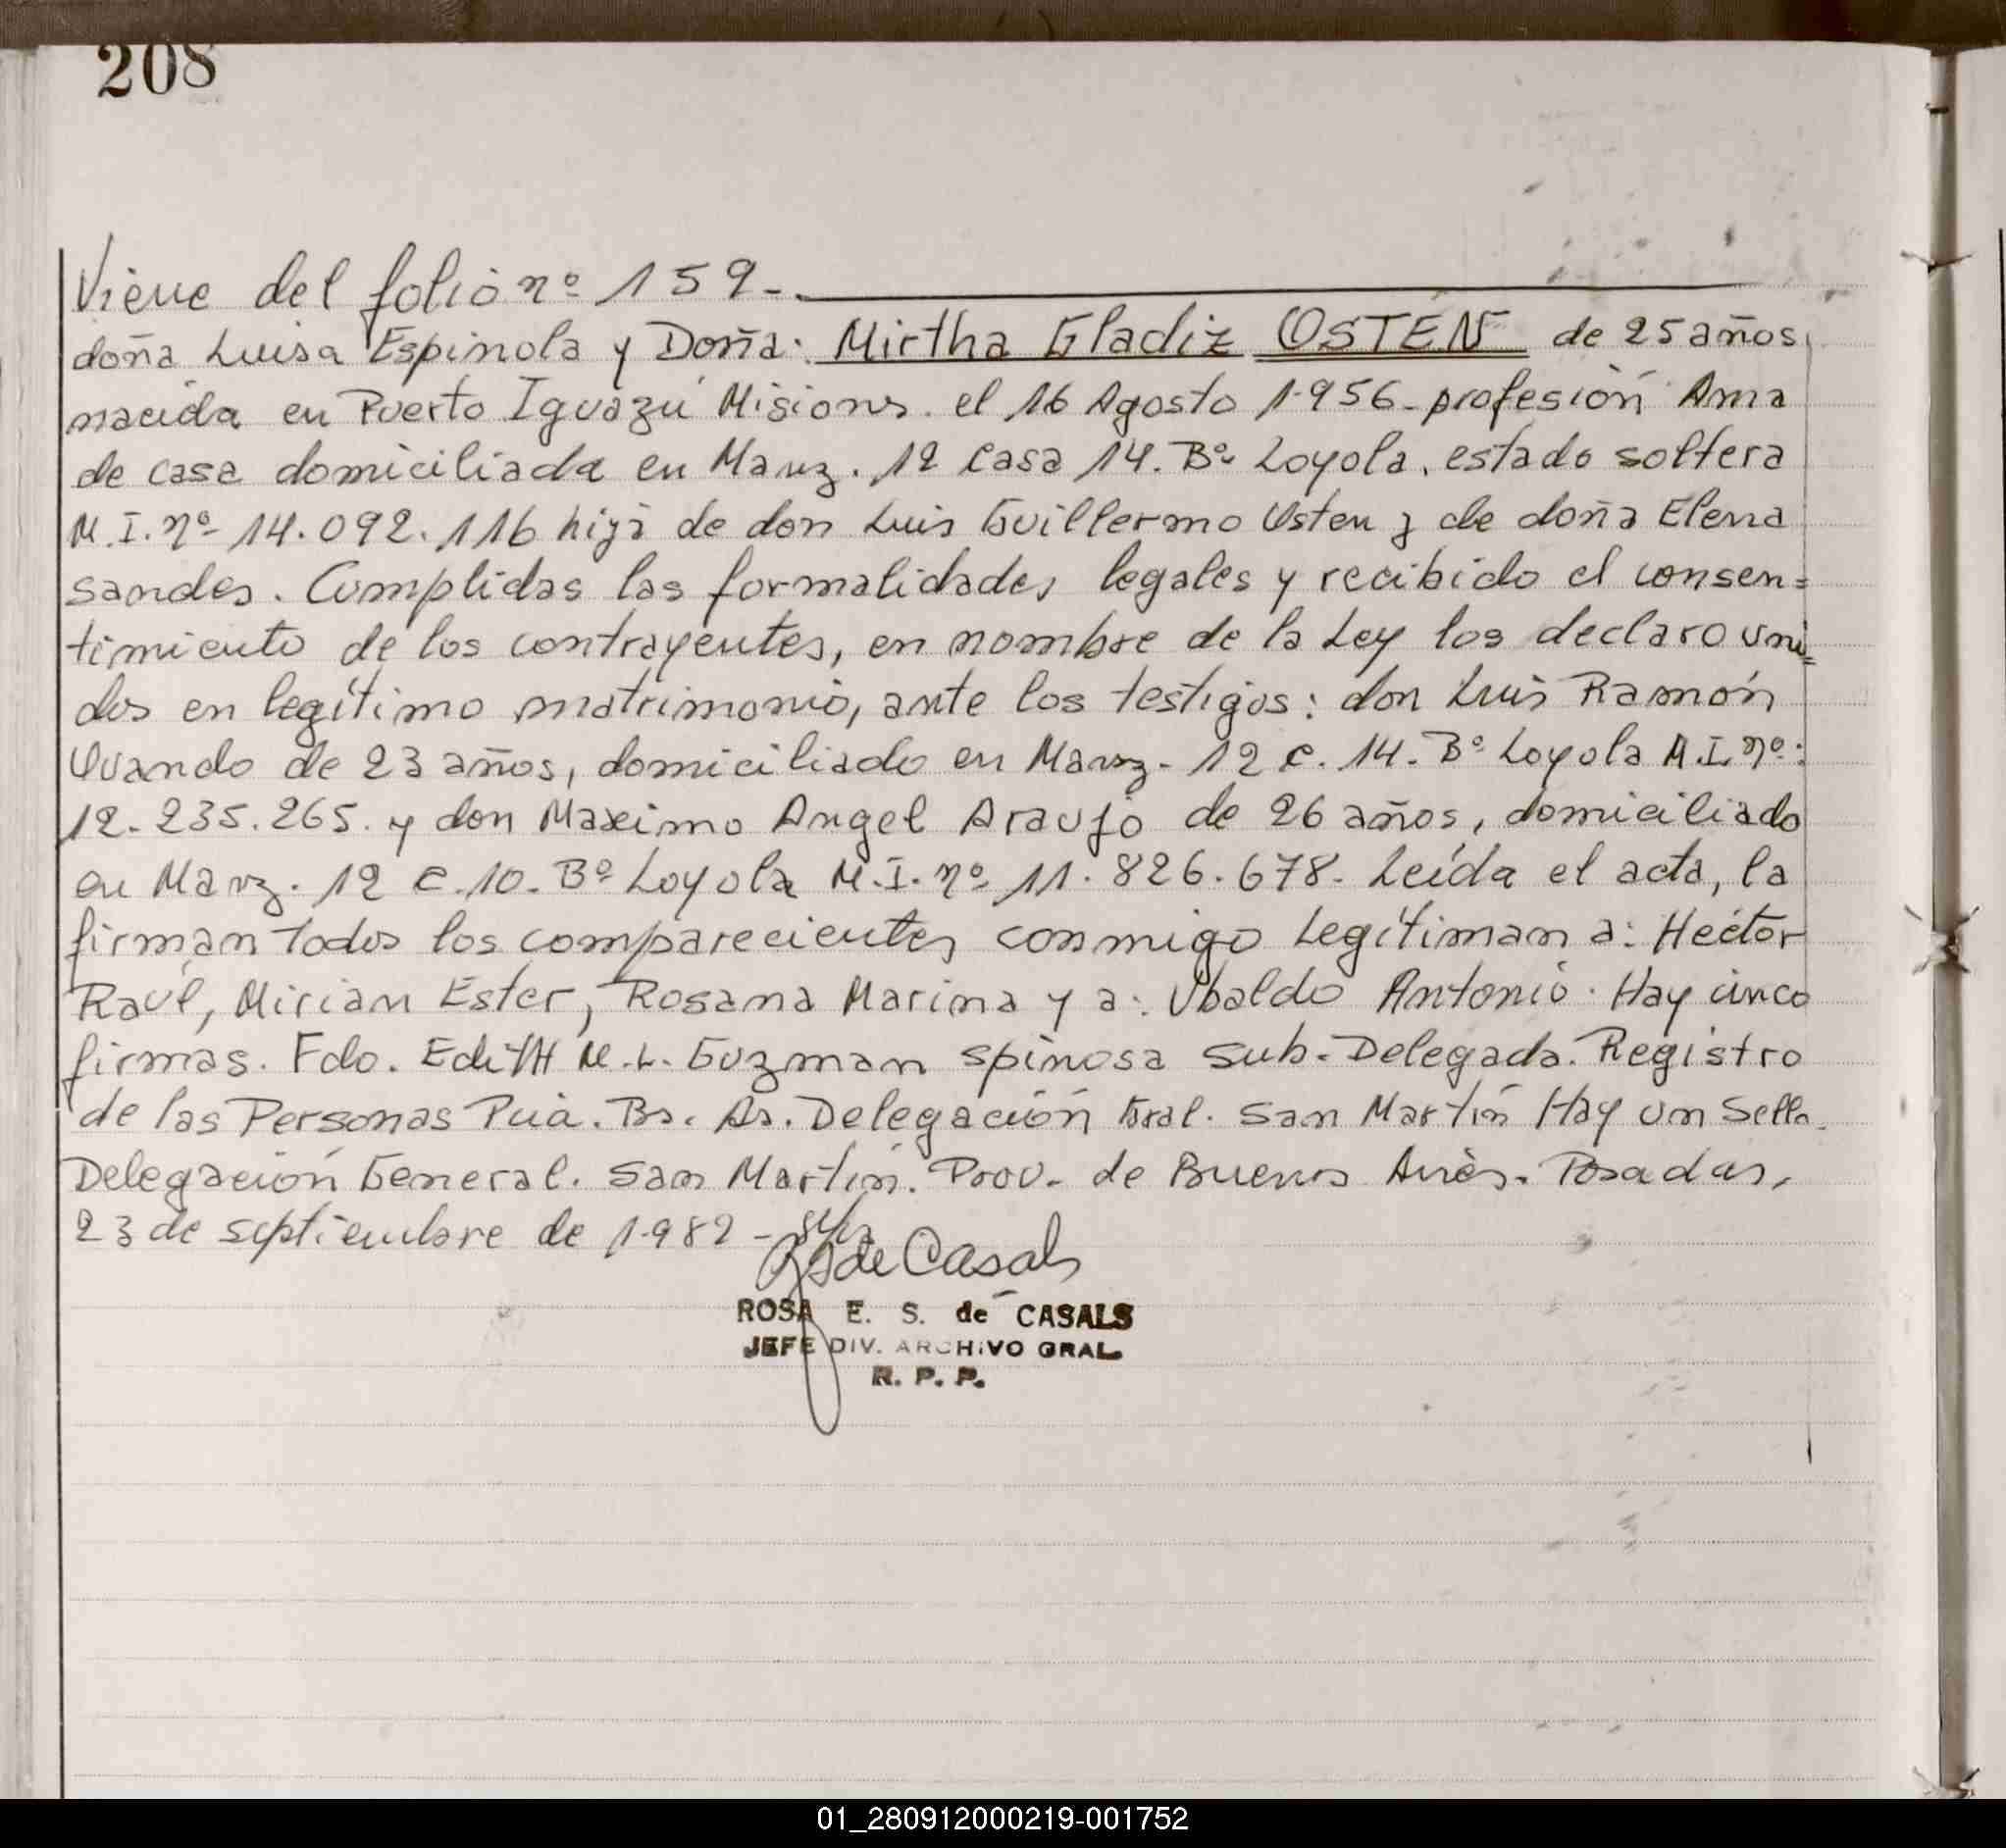 208
Viene del folio nº 159-.
doña Luisa Espinola y Doña: Mirtha Gladiz OSTEN de 25 años,
nacida en Puerto Iguazú Misiones. el 16 Agosto 1.956- profesión Ama
de casa domiciliada en Manz. 12 Casa 14. Bº Loyola, estado soltera
M.I. nº 14.092.116 hija de don Luis Guillermo Osten y de doña Elena
Sandes. Cumplidas las formalidades legales y recibido el consen=
timiento de los contrayentes, en nombre de la Ley los declaro uni=
dos en legítimo matrimonio, ante los testigos: don Luis Ramón
Ovando de 23 años, domiciliado en Manz- 12 c. 14. Bº Loyola M.I. nº:
12.235.265. y don Maximo Angel Araujo de 26 años, domiciliado
en Manz. 12 c. 10. Bº Loyola M.I. nº 11.826.678. Leída el acta, la
firman todos los comparecientes conmigo Legítiman a: Héctor
Raúl, Mirian Ester, Rosana Marina y a: Ubaldo Antonio. Hay cinco
firmas. Fdo. Edith M.L. Guzman Spinosa Sub-Delegada. Registro
de las Personas Pcia. Bs. As. Delegación Gral. San Martín Hay un Sello.
Delegación General. San Martín. Prov. de Buenos Aires. Posadas,
23 de septiembre de 1.982-
de Casals
ROSA E. S. de CASALS
JEFE DIV. ARCHIVO GRAL.
R. P. P.
01_280912000219-001752